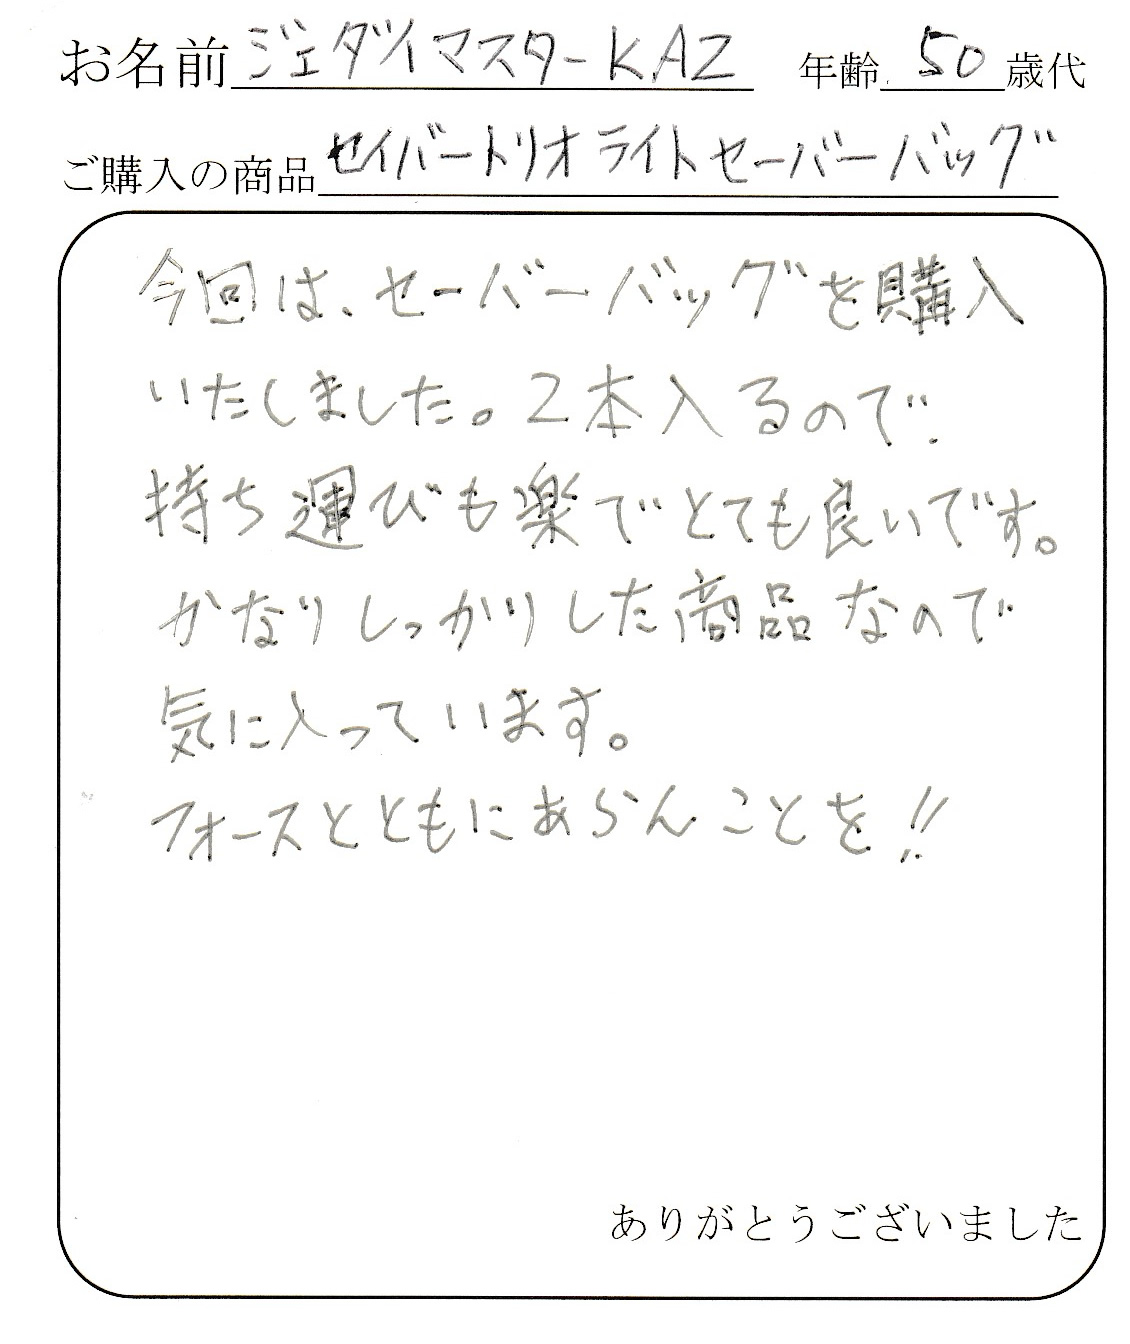 お名前 ジェダイマスターKAZ 年齢 50 歳代
ご購入の商品 セイバートリオ ライトセーバーバッグ
今回は、セーバーバッグを購入
いたしました。2本入るので、
持ち運びも楽でとても良いです。
かなりしっかりした商品なので
気に入っています。
フォースとともにあらんことを!!
ありがとうございました